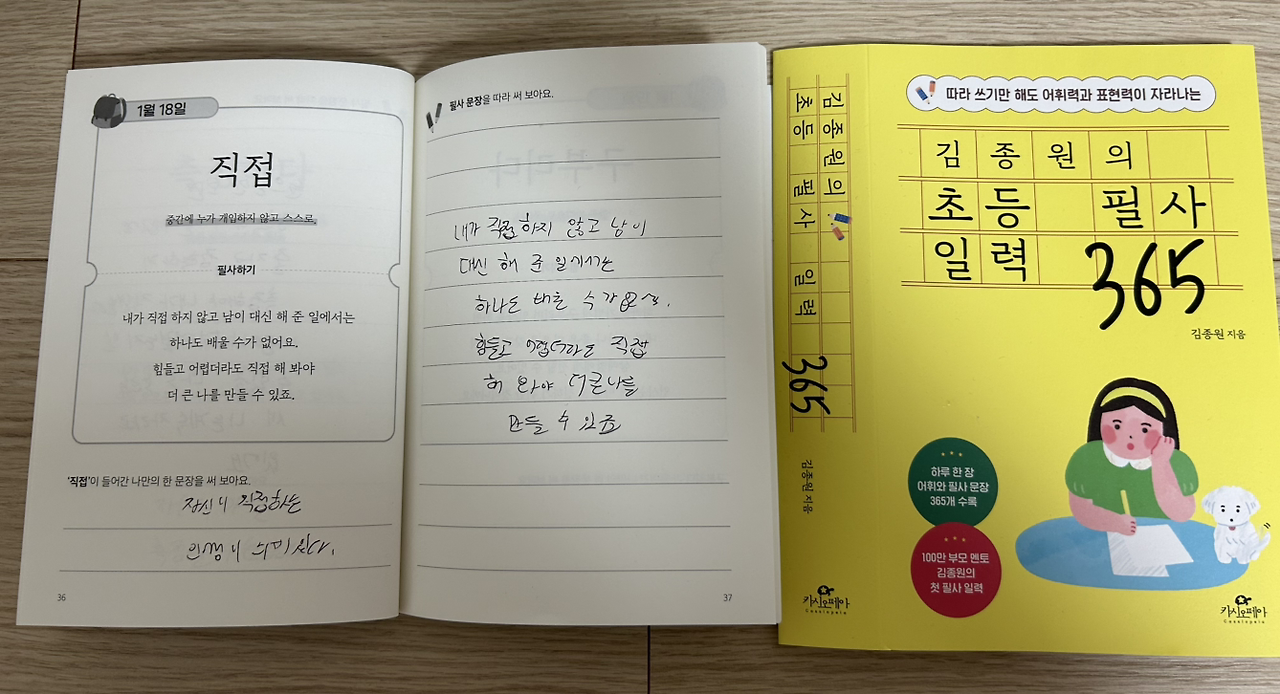 1월 18일
직접
중간에 누가 개입하지 않고 스스로.
필사하기
내가 직접 하지 않고 남이 대신 해 준 일에서는
하나도 배울 수가 없어요.
힘들고 어렵더라도 직접 해 봐야
더 큰 나를 만들 수 있죠.
'직접'이 들어간 나만의 한 문장을 써 보아요.
직접하는
인생이
36
필사 문장을 따라 써 보아요.
내가 직접 하지 않고 남이
대신 해 준
하나도 배울 수가
힘들고 어렵더라도 직접
해 봐야 더 큰 나를
만들 수 있죠
37
김종원의
초등 필사 일력
365
김종원 지음
카시오페아
Cassiopeia
따라 쓰기만 해도 어휘력과 표현력이 자라나는
김종원의
초등 필사
일력 365
김종원 지음
하루 한 장
어휘와 필사 문장
365개 수록
100만 부모 멘토
김종원의
첫 필사 일력
카시오페아
Cassiopeia